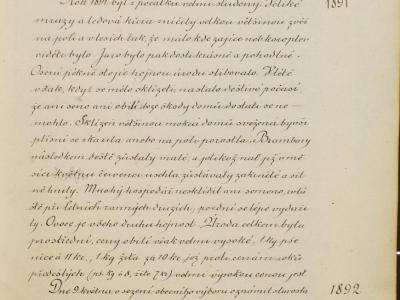 Rok 1891 byl z počátku velmi studený. Veliké 1891
mrazy a ledová kůra zničily velkou většinou zvěř
na poli a v lesích tak, že málo kde zajíce neb koroptev
viděti bylo. Jaro bylo pak dosti krásné a pohodlné.
Osení pěkně stojíc hojnou úrodu slibovalo. V létě
však, když se mělo sklízeti, nastalo deštivé počasí,
že ani seno ani obilí beze škody domů dostati se ne-
mohlo. Sklizeň většinou mokrá domů svežena byvši
plísní se zkazila anebo na poli porostla. Brambory
následkem deště zůstaly malé, a jelikož nať již v mě-
síci červenci uschla, zůstávaly zakrnělé a sil
ně hnily. Mnohý hospodář nesklidil ani semeno, zvlá
ště při letních ranných druzích, pozdní se lépe vydaři
ly. Ovoce je všeho druhu hojnost. Úroda celkem byla
prostřední, ceny obilí však velmi vysoké, 1 hy pše
nice à 11 kr., 1 hy žita za 10 kr což proti cenám roků
předešlých (pš. 8, žito 7 kr) velmi vysokou cenou jest.
Dne 9. května v sezení obecního výboru oznámil starosta 1892